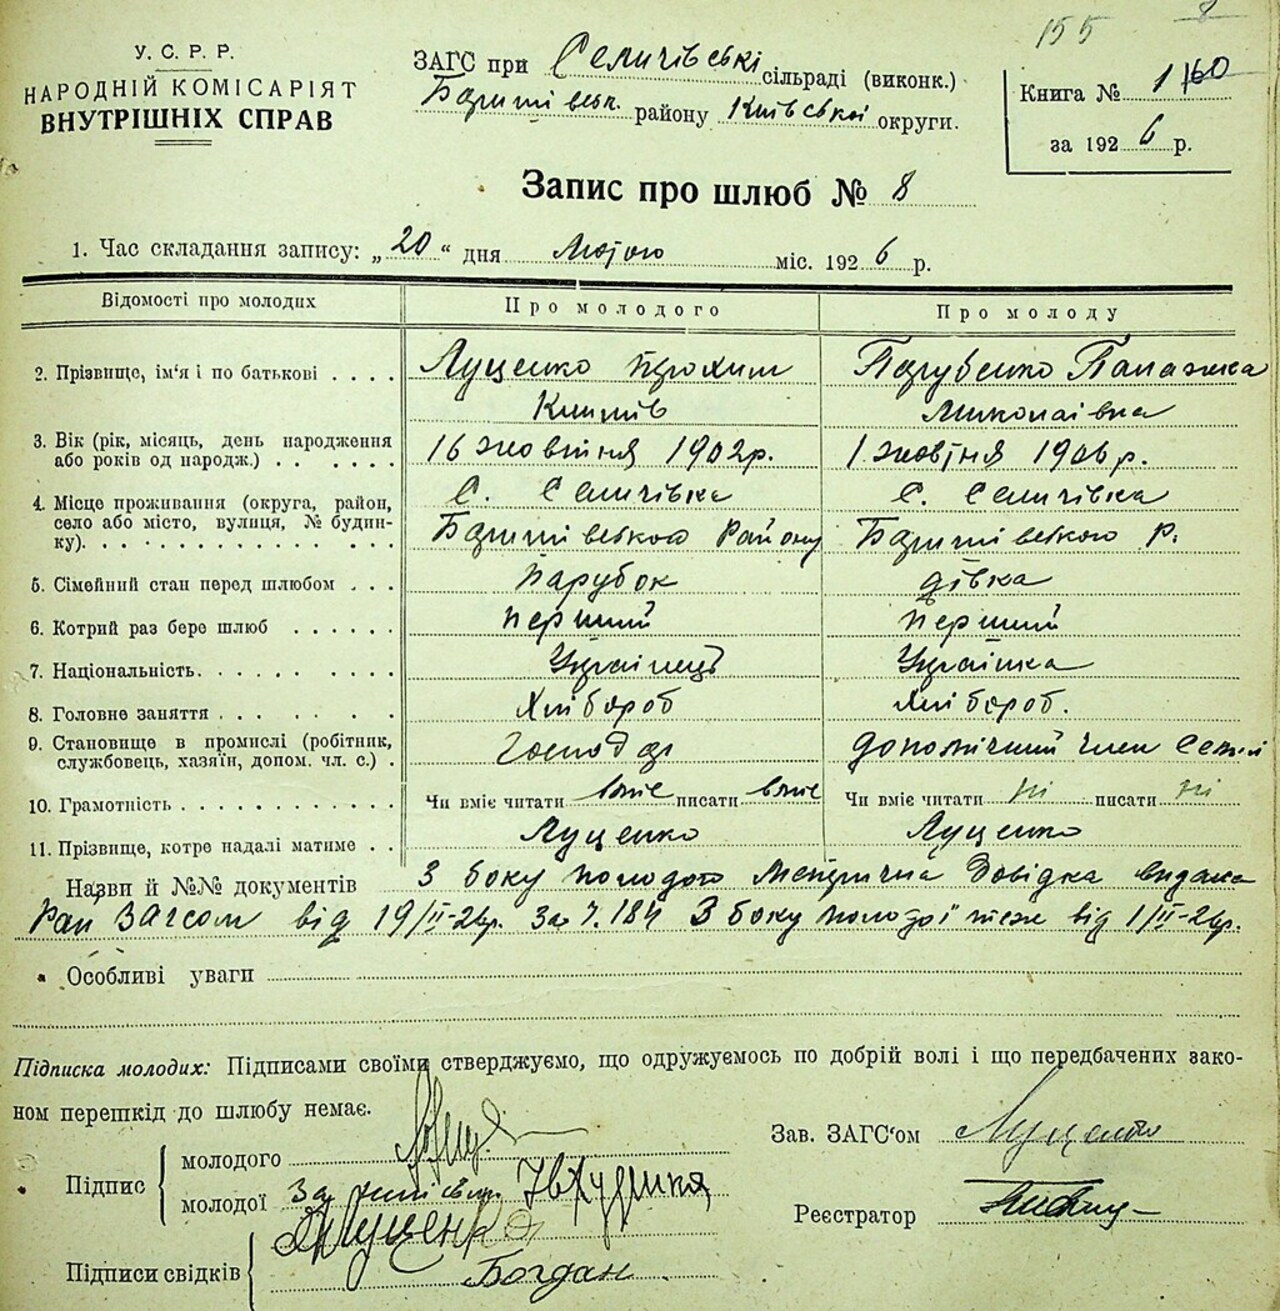 155
У. С. Р. Р.
НАРОДНІЙ КОМІСАРІЯТ
ВНУТРІШНІХ СПРАВ
ЗАГС при Селичівські сільраді (виконк.)
Баришівськ. району Київської округи.
Книга № 1/60
за 1926 р.
Запис про шлюб № 8
1. Час складання запису: „20“ дня Лютого міс. 1926 р.
Відомості про молодих Про молодого Про молоду
2. Прізвище, ім'я і по батькові . . . . Луценко Трохим Парубенко Палажка
Климів Миколаівна
3. Вік (рік, місяць, день народження 16 жовтня 1902р. 1 жовтня 1906р.
або років од народж.) . . . . . .
4. Місце проживання (округа, район, С. Селичівка С. Селичівка
село або місто, вулиця, № будин-
ку). . . . . . . . . . . . . . Баришівського Району Баришівського Р.
5. Сімейний стан перед шлюбом . . . Парубок дівка
6. Котрий раз бере шлюб . . . . . . перший перший
7. Національність. . . . . . . . . . Українець Українка
8. Головне заняття . . . . . . . . Хлібороб Хлібороб.
9. Становище в промислі (робітник, Господар допомічний член семьі
службовець, хазяїн, допом. чл. с.) .
10. Грамотність . . . . . . . . . . . . Чи вміє читати вміє писати вміє Чи вміє читати ні писати ні
11. Прізвище, котре надалі матиме . . Луценко Луценко
Назви й №№ документів З боку молодого Метрична Довідка видана
Рай ЗАГСом від 19/II-26р. За Ч. 184 З боку молодої теж від 1/II-26р.
Особливі уваги
Підписка молодих: Підписами своїми стверджуємо, що одружуємось по добрій волі і що передбачених зако-
ном перешкід до шлюбу немає.
Зав. ЗАГС'ом Луценко
Підпис
молодого
молодої За
Реєстратор
Луценко
Підписи свідків
Богдан